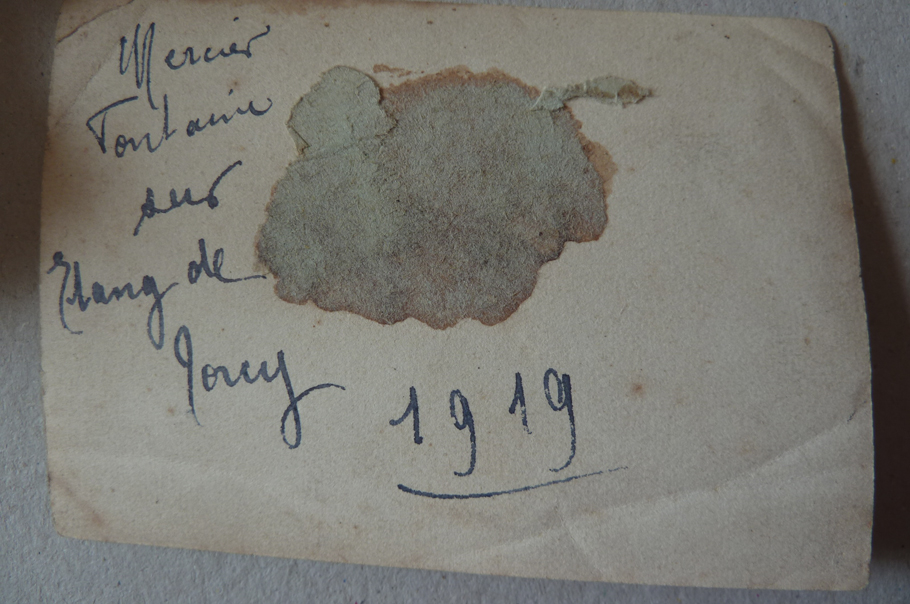 Mercier
Fontaine
sur
Etang de
Torcy
1919